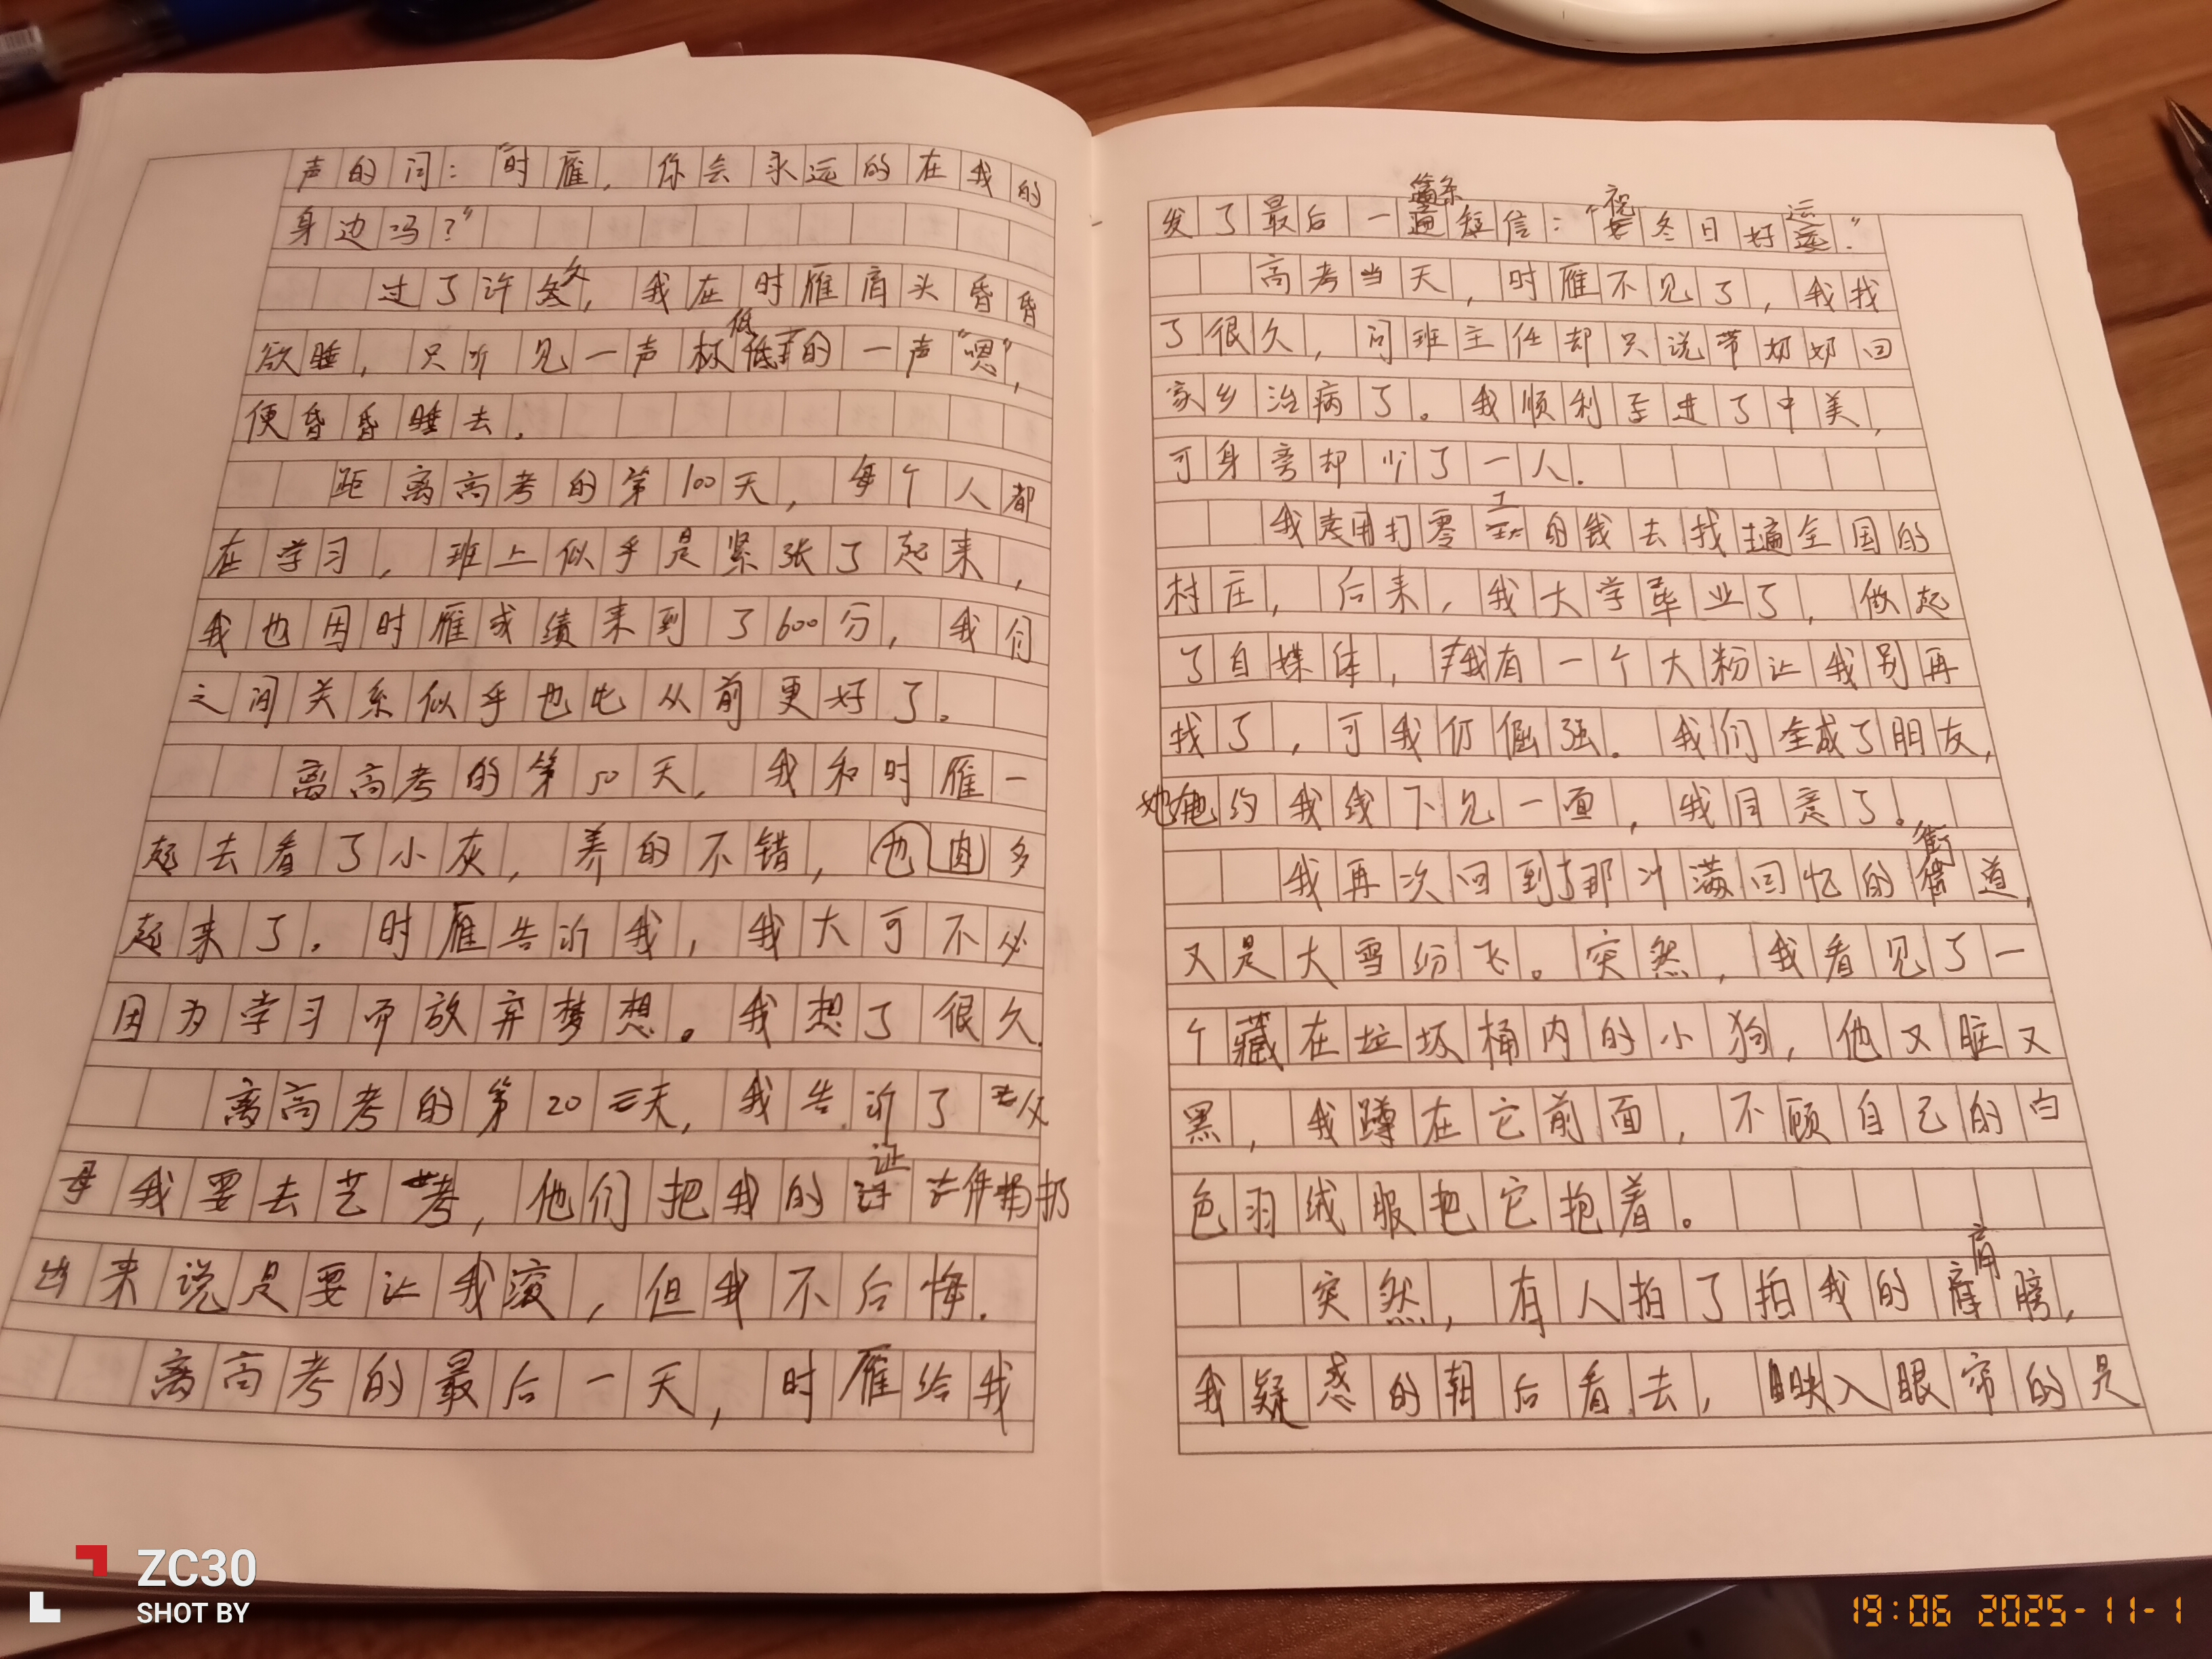 声的问：“时雁，你会永远的在我的
身边吗？”
过了许久，我在时雁肩头昏昏
欲睡，只听见一声极低的一声“嗯”，
便昏昏睡去。
距离高考的第100天，每个人都
在学习，班上似乎是紧张了起来，
我也因时雁成绩来到了600分，我们
之间关系似乎也比从前更好了。
离高考的第50天，我和时雁一
起去看了小灰，养的不错，也肉多
起来了。时雁告诉我，我大可不必
因为学习而放弃梦想。我想了很久。
离高考的第20天，我告诉了父
母我要去艺考，他们把我的证件扔
出来说是要让我滚，但我不后悔.
离高考的最后一天，时雁给我
发了最后一条短信：“祝冬日好运.”
高考当天，时雁不见了，我找
了很久，问班主任却只说带奶奶回
家乡治病了。我顺利进了中美，
可身旁却少了一人.
我用打零工的钱去找遍全国的
村庄，后来，我大学毕业了，做起
了自媒体，我有一个大粉让我别再
找了，可我仍倔强。我们全成了朋友，
她约我线下见一面，我同意了。
我再次回到了那川满回忆的街道，
又是大雪纷飞。突然，我看见了一
个藏在垃圾桶内的小狗，他又脏又
黑，我蹲在它前面，不顾自己的白
色羽绒服把它抱着。
突然，有人拍了拍我的肩膀，
我疑惑的朝后看去，映入眼帘的是
ZC30
SHOT BY
19:06 2025-11-1